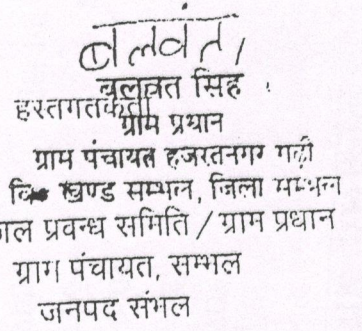 बलवंत
बलवंत सिंह
हस्तगतकर्ता
ग्राम प्रधान
ग्राम पंचायत हजरतनगर गढ़ी
वि० खण्ड सम्भल, जिला सम्भल
जल प्रवन्ध समिति / ग्राम प्रधान
ग्राग पंचायत, सम्भल
जनपद संभल